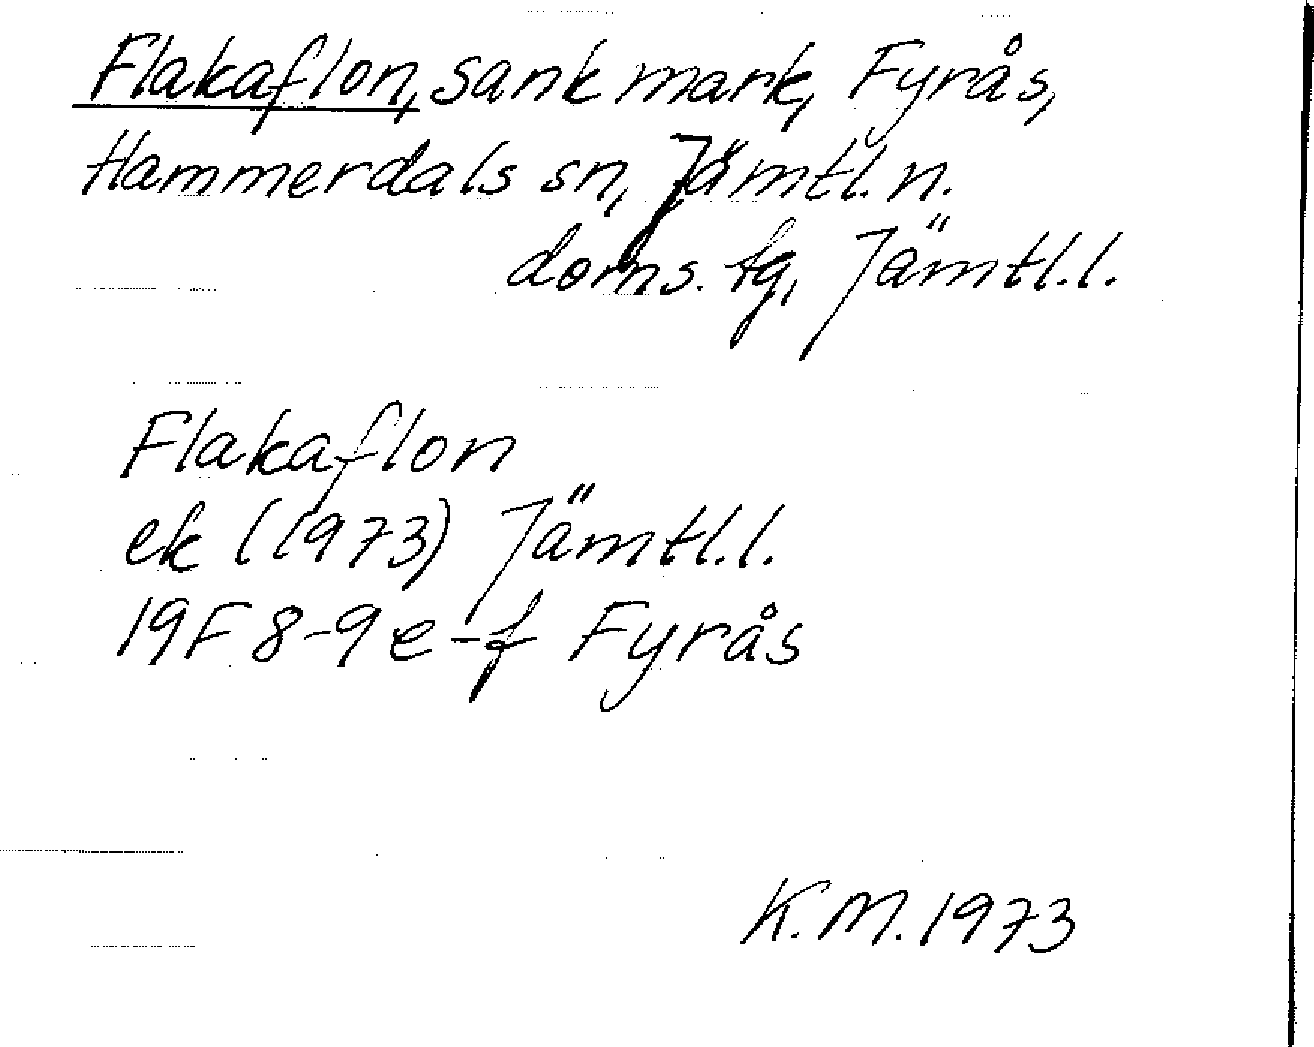 Flakaflon, sank mark, Fyrås,
Hammerdals sn, Jämtl. n.
doms. tg, Jämtl. l.
Flakaflon
ek (1973) Jämtl. l.
19F 8-9 e-f Fyrås
K.M. 1973